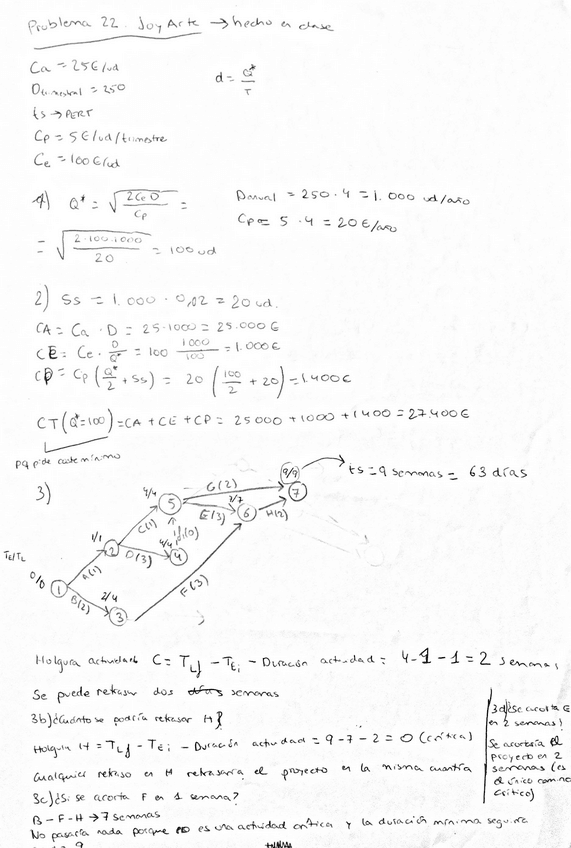 Problema 22. JoyArte → hecho en clase
Ca = 25€/ud
Dtrimestral = 250
ts → PERT
Cp = 5€/ud/trimestre
Ce = 100€/ud
d = Q*/T
1) Q* = √(2CeD/Cp) =
= √(2·100·1000/20) = 100 ud
Danual = 250 · 4 = 1.000 ud/año
Cp = 5 · 4 = 20€/año
2) Ss = 1.000 · 0,02 = 20 ud.
CA = Ca · D = 25·1000 = 25.000€
CE = Ce · D/Q* = 100 1000/100 = 1.000€
CP = Cp (Q*/2 + Ss) = 20 (100/2 + 20) = 1.400€
CT(Q*=100) = CA + CE + CP = 25000 + 1000 + 1400 = 27.400€
pq pide coste mínimo
3)
ts = 9 semanas = 63 días
TE/TL
0/0
1
A(1)
1/1
2
B(2)
2/4
3
C(1)
D(3)
4/4
4
4/4
5
G(2)
E(3)
7/7
6
F(3)
H(2)
9/9
7
Holgura actividad C = TLj - TEi - Duración actividad = 4-1-1 = 2 semanas
Se puede retrasar dos semanas
3b) ¿Cuánto se podría retrasar H?
Holgura H = TLj - TEi - Duración actividad = 9-7-2 = 0 (crítica)
Cualquier retraso en H retrasaría el proyecto en la misma cuantía
3c) ¿Si se acorta F en 1 semana?
B-F-H → 7 semanas
No pasaría nada porque no es una actividad crítica y la duración mínima seguiría
9
3d) ¿Se acorta E
en 2 semanas?
Se acortaría el
proyecto en 2
semanas (es
el único camino
crítico)